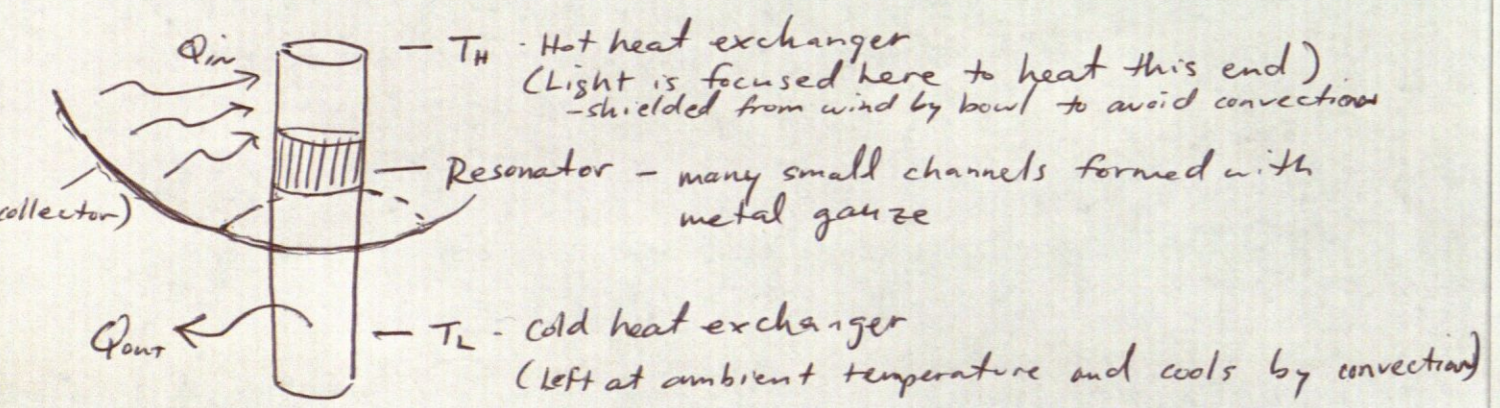 Qin
— TH · Hot heat exchanger
(Light is focused here to heat this end)
-shielded from wind by bowl to avoid convection
— Resonator — many small channels formed with
metal gauze
collector)
Qout
— TL - Cold heat exchanger
(Left at ambient temperature and cools by convection)